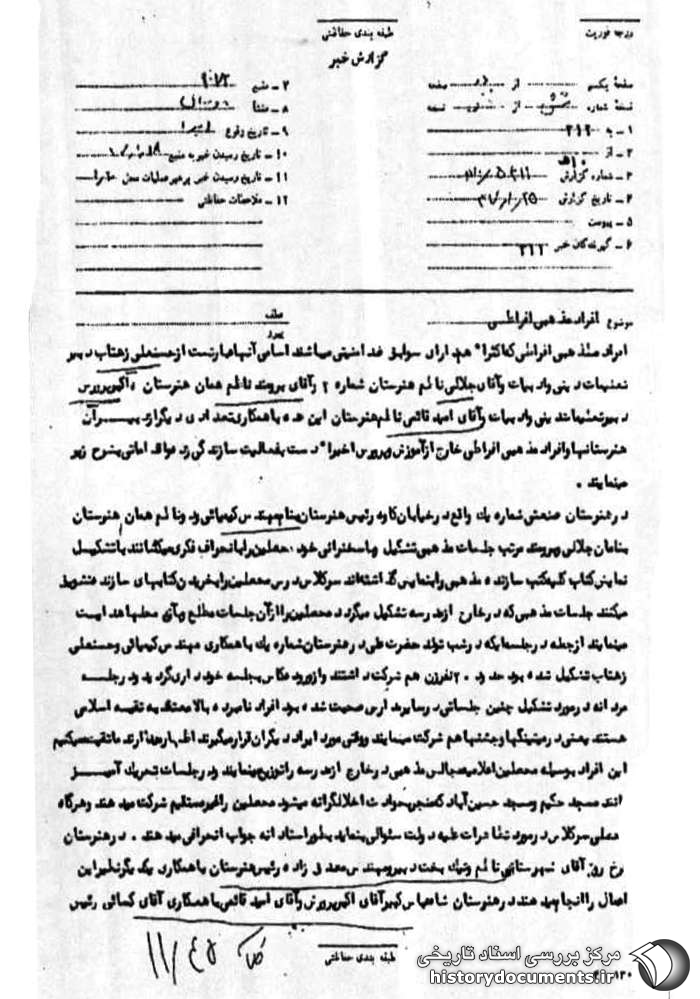 درجه فوریت
طبقه بندی حفاظتی
گزارش خبر
صفحه یکم از صفحه
نسخه شماره از نسخه
۱ - به ۲۱۲
۲ - از ۱۰ ه‍
۳ - شماره گزارش
۴ - تاریخ گزارش
۵ - پیوست
۶ - گیرندگان خبر ۳۱۲
۷ - منبع ۹۰۷۲
۸ - منشأ
۹ - تاریخ وقوع اخیرا
۱۰ - تاریخ رسیدن خبر به منبع
۱۱ - تاریخ رسیدن خبر به رهبر عملیات محل
۱۲ - ملاحظات حفاظتی
موضوع افراد مذهبی افراطی
عطف
پیرو
افراد مذهبی افراطی که اکثرا" هم دارای سوابق ضد امنیتی میباشند اسامی آنها عبارتست از حسنعلی زهتاب دبیر
تعلیمات دینی وادبیات وآقای جلالی ناظم هنرستان شماره ۲ وآقای برومند ناظم همان هنرستان واکبر پرورش
دبیر تعلیمات دینی وادبیات وآقای امید قائمی ناظم هنرستان این عده با همکاری تعدادی دیگر از دبیران
هنرستانها وافراد مذهبی افراطی خارج از آموزش وپرورش اخیرا" دست بفعالیت سازندگی زده واقداماتی بشرح زیر
مینمایند .
در هنرستان صنعتی شماره یک واقع در خیابان کاوه رئیس هنرستان بنام مهندس کیمیائی ودو ناظم همان هنرستان
بنامان جلالی وبرومند مرتب جلسات مذهبی تشکیل وبا سخنرانی خود ، محصلین را بانحراف فکری میکشانند با تشکیل
نمایش کتاب کلیه کتب سازنده مذهبی را بنمایش گذاشته‌اند سر کلاس درس محصلین را بخریدن کتابهای سازنده تشویق
میکنند جلسات مذهبی که در خارج از مدرسه تشکیل میگردد محصلین را از آن جلسات مطلع
مینمایند از جمله در جلسه‌ایکه در شب تولد حضرت علی در هنرستان شماره یک با همکاری مهندس کیمیائی وحسنعلی
زهتاب تشکیل شده بود حدود ۲۰ نفر زن هم شرکت داشتند واز ورود عکاس بجلسه خودداری گردید ودر جلسه
مردانه در مورد تشکیل چنین جلساتی در سایر مدارس صحبت شده بود افراد نامبرده بالا معتقد به تقیه اسلامی
هستند یعنی در میتینگها وجشنها هم شرکت مینمایند ووقتی مورد ایراد دیگران قرار میگیرند اظهار میدارند ما تقیه میکنیم
این افراد بوسیله محصلین اعلامیه مجالس مذهبی در خارج از مدرسه را توزیع مینمایند ودر جلسات تحریک آمیز
مانند مسجد حکیم ومسجد حسین‌آباد که منجر بحوادث اخلالگرانه میشود محصلین را غیر مستقیم شرکت میدهند وهرگاه
محصلی سر کلاس در مورد تظاهرات علیه دولت سئوالی بنماید بطور استادانه جواب انحرافی میدهند . در هنرستان
نرخ روز آقای شهرستانی ناظم ونیک بخت دبیر ومهندس صدق زاده رئیس هنرستان با همکاری یک دیگر نظیر این
اعمال را انجام میدهند در هنرستان شاه عباس کبیر آقای اکبر پرورش وآقای امید قائمی با همکاری آقای کسائی رئیس
طبقه بندی حفاظتی
۱۱/۴۵
مرکز بررسی اسناد تاریخی
historydocuments.ir